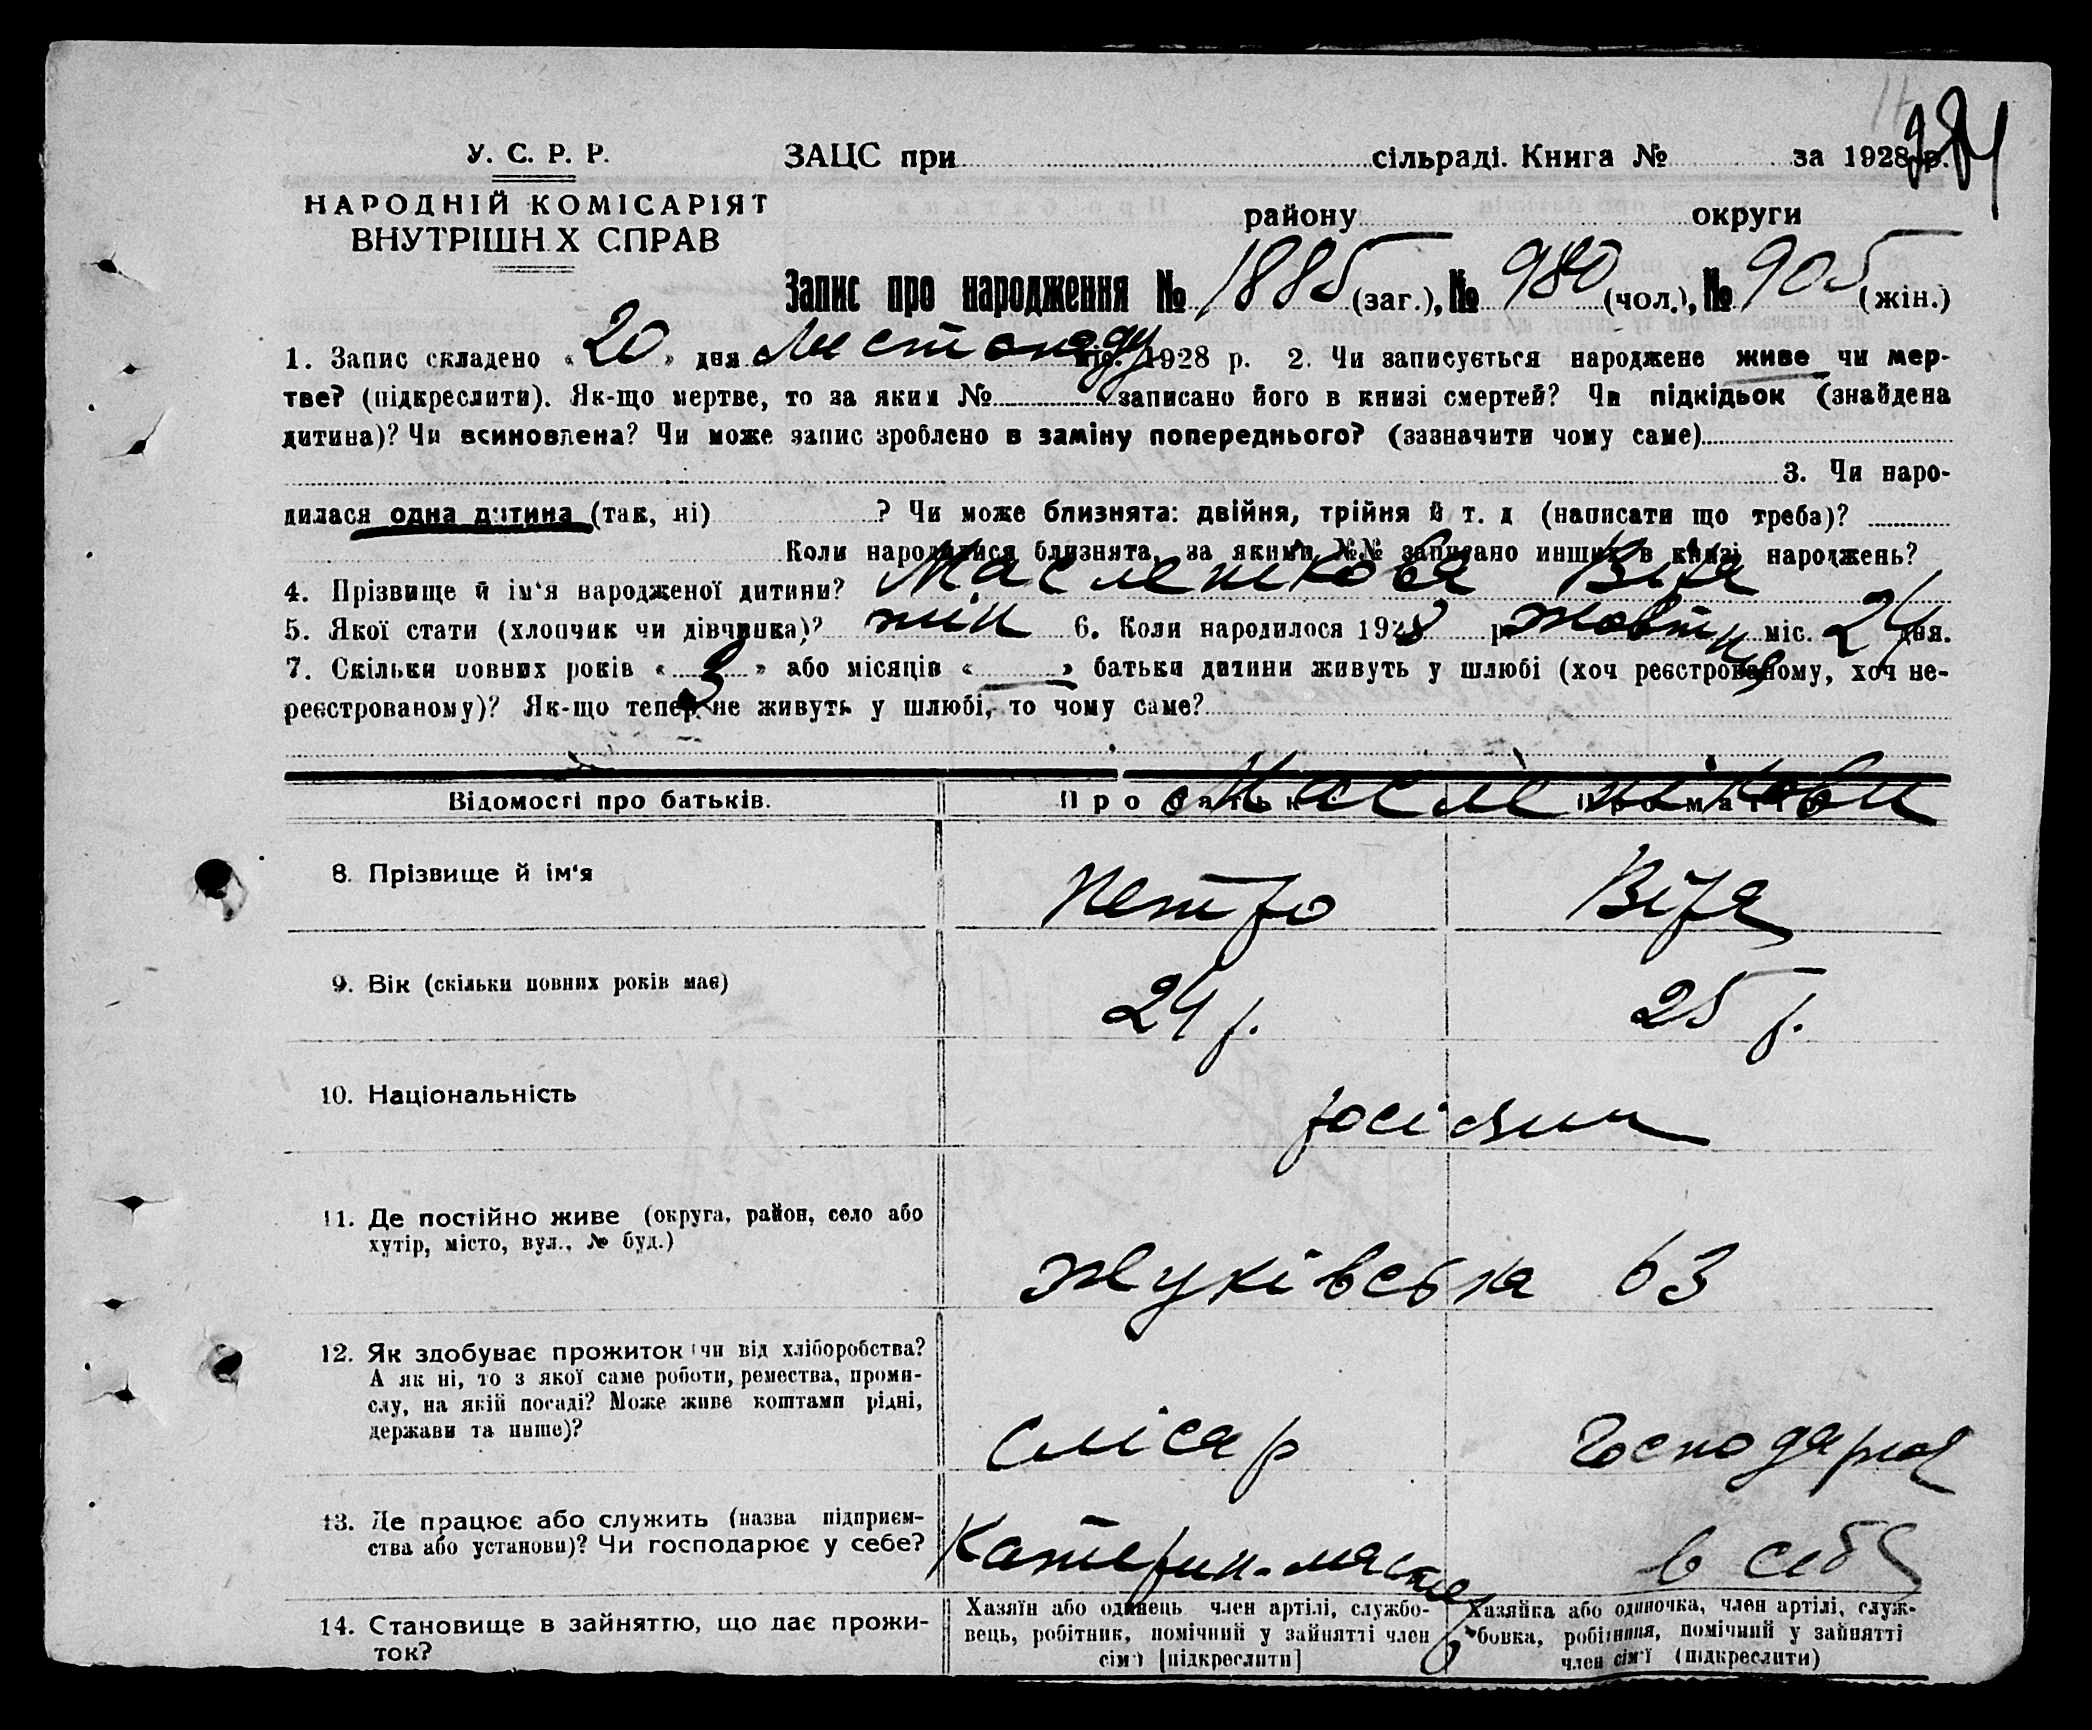 284
У. С. Р. Р.
ЗАЦС при сільраді. Книга № за 1928 р.
НАРОДНІЙ КОМІСАРІЯТ
ВНУТРІШН Х СПРАВ
району округи
Запис про народження № 1885 (заг.), № 980 (чол.), № 905 (жін.)
1. Запис складено « 20 » дня Листопаду 1928 р. 2. Чи записується народжене живе чи мер-
тве? (підкреслити). Як-що мертве, то за яким № записано його в книзі смертей? Чи підкідьок (знайдена
дитина)? Чи всиновлена? Чи може запис зроблено в заміну попереднього? (зазначити чому саме)
3. Чи наро-
дилася одна дитина (так, ні) ? Чи може близнята: двійня, трійня й т. д (написати що треба)?
Коли народилися близнята, за якими №№ записано инших в книзі народжень?
4. Прізвище й ім'я народженої дитини? Масленікова Віра
5. Якої статі (хлопчик чи дівчинка)? жін 6. Коли народилося 1928 р. жовтня міс. 24 дня.
7. Скільки повних років « 3 » або місяців « » батьки дитини живуть у шлюбі (хоч реєстрованому, хоч не-
реєстрованому)? Як-що тепер не живуть у шлюбі, то чому саме?
Відомості про батьків. Про батька Про матір
Масленікови
8. Прізвище й ім'я Петро Віра
9. Вік (скільки повних років має) 24 р. 25 р.
10. Національність росіяни
11. Де постійно живе (округа, район, село або
хутір, місто, вул., № буд.)
Жуківська 63
12. Як здобуває прожиток (чи від хліборобства?
А як ні, то з якої саме роботи, ремества, проми-
слу, на якій посаді? Може живе коштами рідні,
держави та инше)?
Слісар Господарює
13. Де працює або служить (назва підприєм-
ства або установи)? Чи господарює у себе?
Катерин. в себе
14. Становище в зайняттю, що дає прожи-
ток?
Хазяїн або одинець член артілі, службо-
вець, робітник, помічний у зайнятті член
сім'ї [підкреслити]
Хазяйка або одиночка, член артілі, служ-
бовка, робітниця, помічний у зайнятті
член сім'ї (підкреслити)